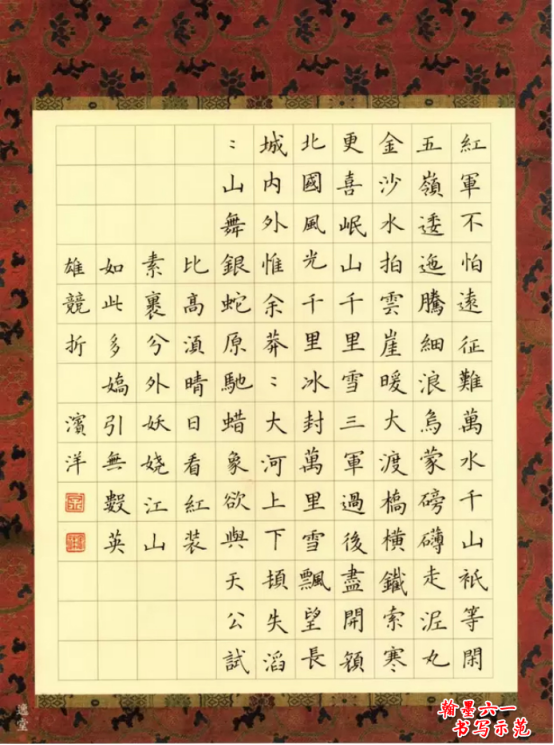 紅軍不怕遠征難萬水千山祇等閑
五嶺逶迤騰細浪烏蒙磅礴走泥丸
金沙水拍雲崖暖大渡橋橫鐵索寒
更喜岷山千里雪三軍過後盡開顏
北國風光千里冰封萬里雪飄望長
城内外惟余莽〻大河上下頓失滔
〻山舞銀蛇原馳蜡象欲與天公試
比高須晴日看紅装
素裹兮外妖娆江山
如此多嬌引無數英
雄競折 濱洋
翰墨六一
书写示范